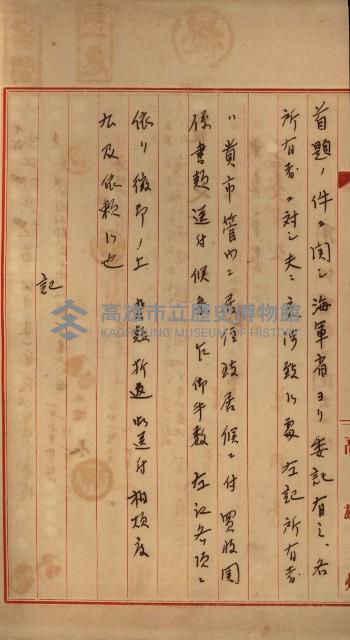 首題ノ件ニ関シ海軍省ヨリ委託有之、各
所有者ニ対シ夫々交渉致候處左記所有者
ハ貴市管内ニ居住致居候ニ付買收関
係書類送付候条乍御手数左記各項ニ
依リ徴印ノ上 書類折返御送付相煩度
此及依頼候也
記
高雄市立歷史博物館
KAOHSIUNG MUSEUM OF HISTORY
高雄州